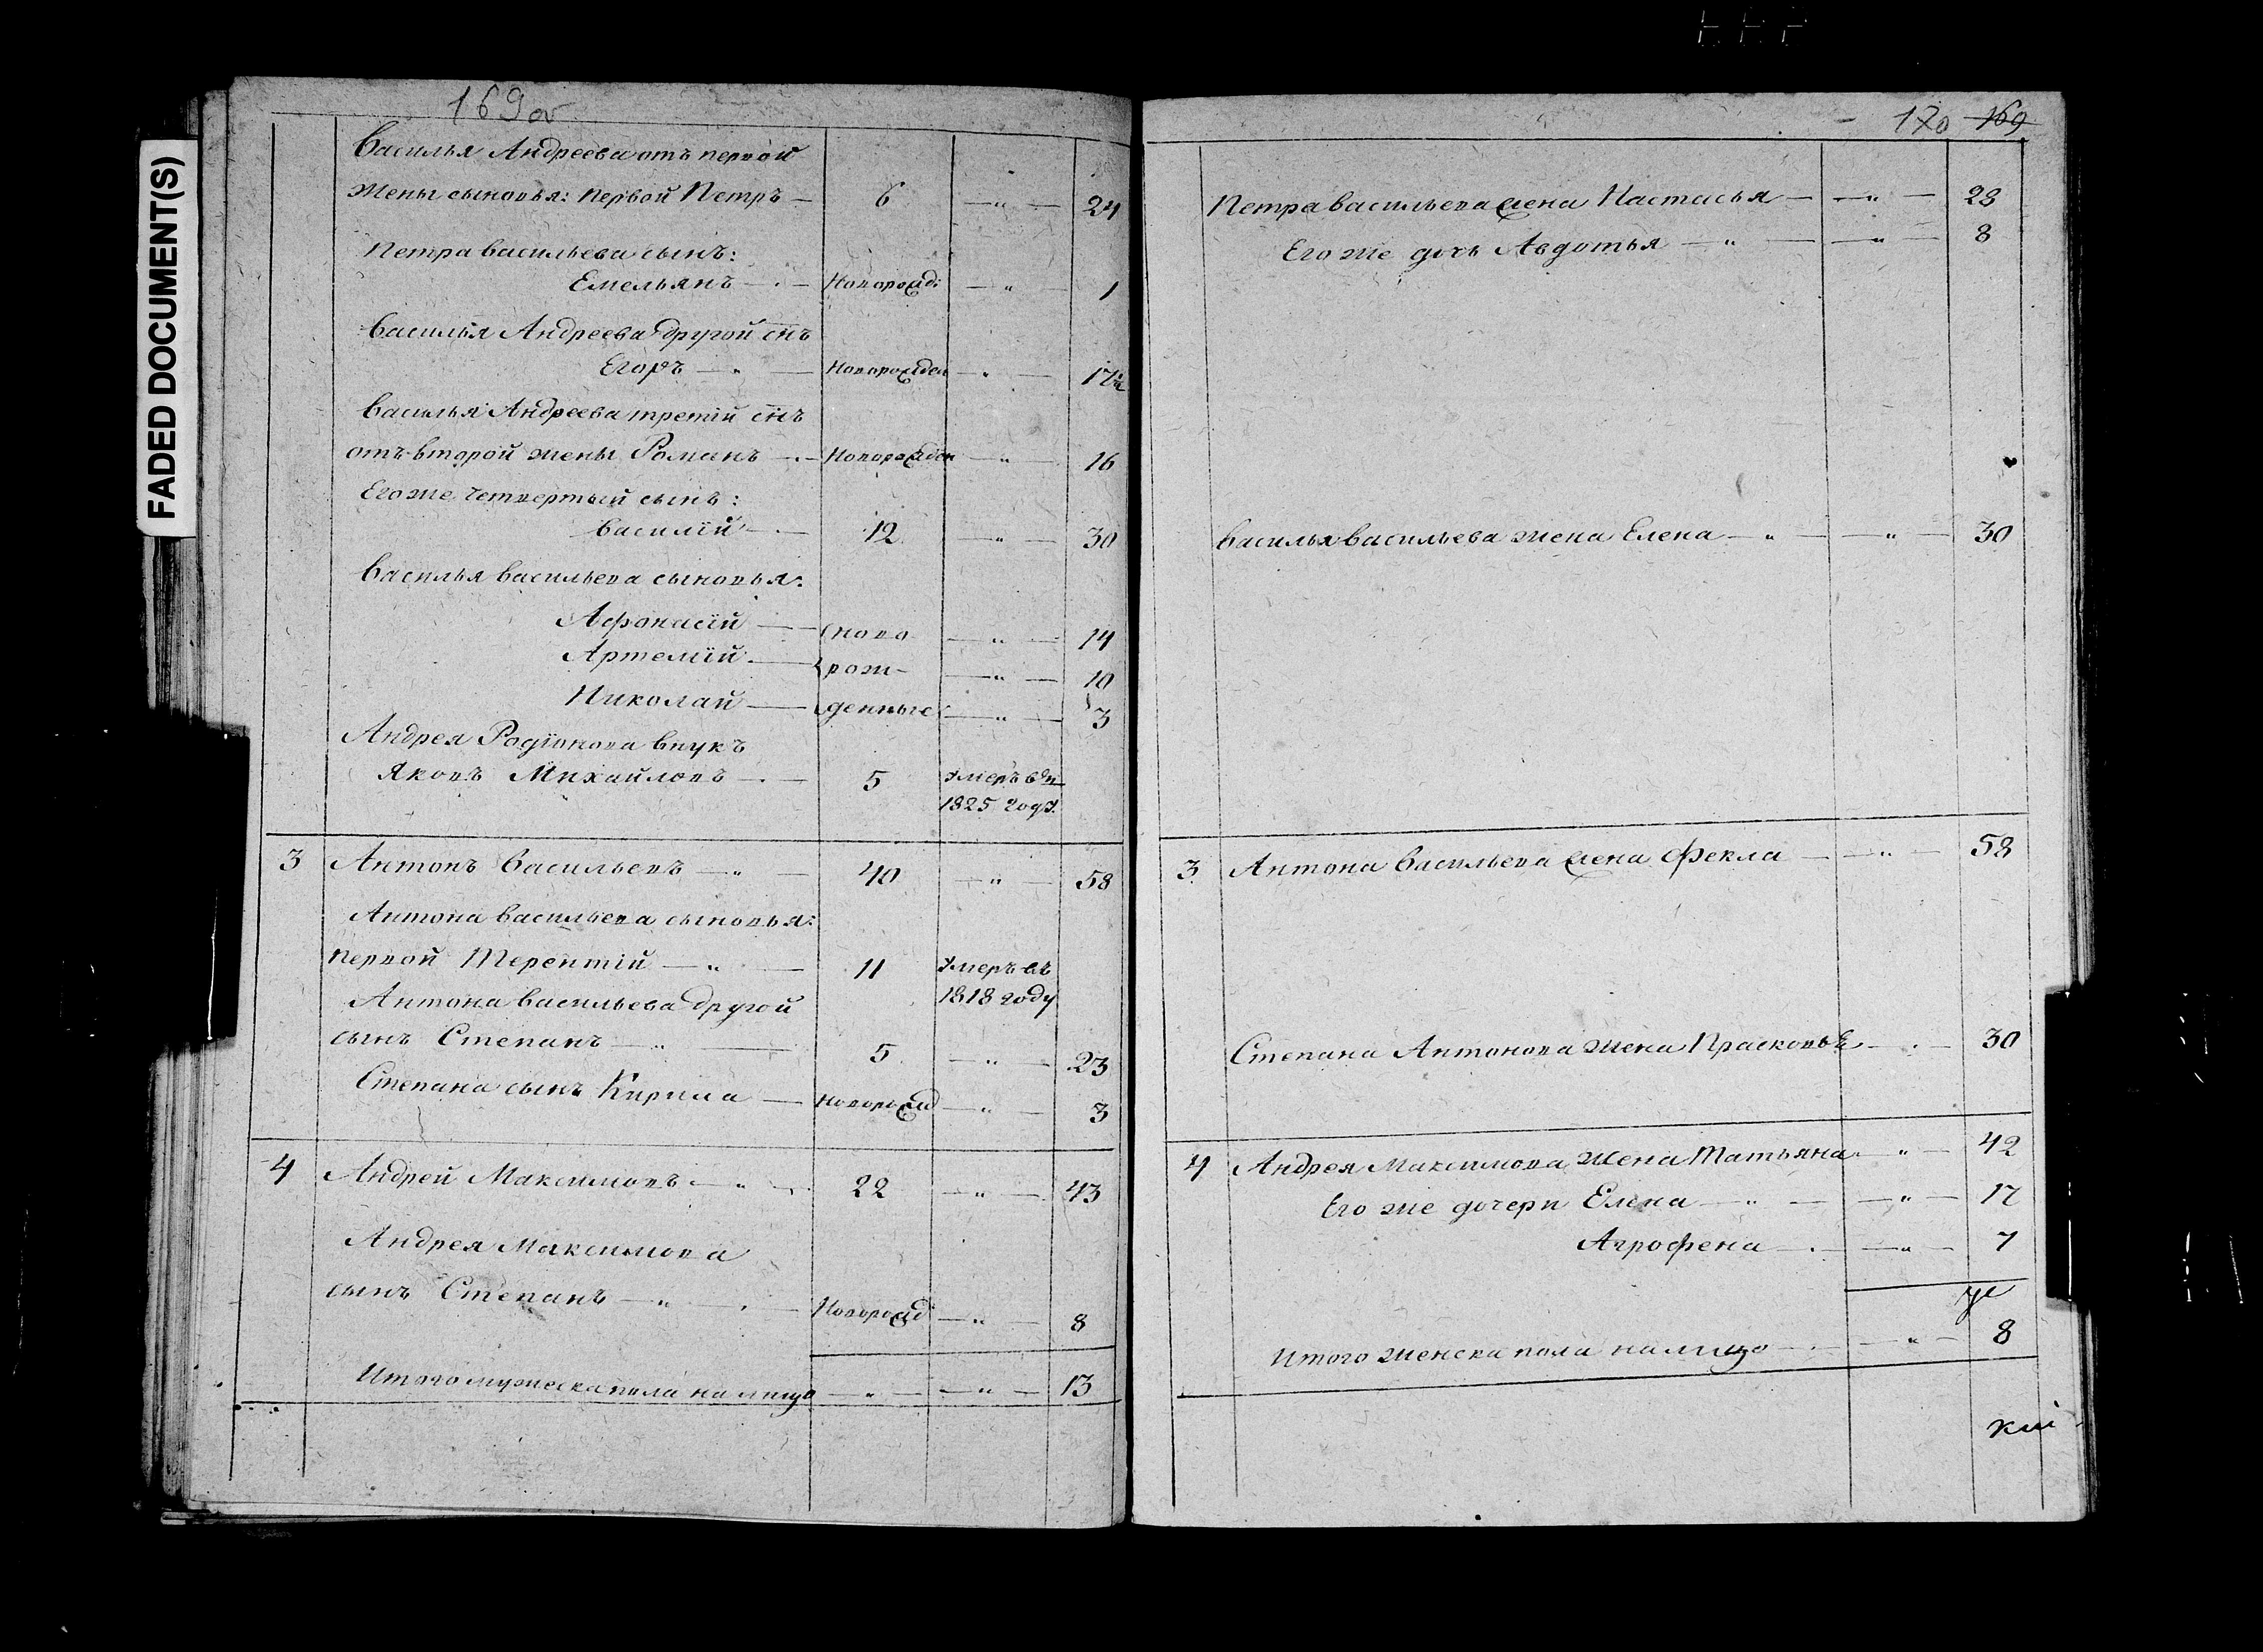 FADED DOCUMENT(S)
169 об
Василья Андреева отъ первой
жены сыновья: первой Петръ — 6 — " — 24
Петра Васильева сынъ:
Емельянъ — Новорожд: — " — 1
Василья Андреева другой снъ
Егоръ — " — Новорожден — " — 17½
Василья Андреева третiй снъ
отъ второй жены Романъ — Новорожден — " — 16
Его же четвертый сынъ:
Василiй — 12 — " — 30
Василья Васильева сыновья:
Афонасiй — ново — " — 14
Артемiй — рож- — " — 10
Николай — денные — " — 3
Андрея Родiонова внукъ
Яковъ Михайловъ — 5 умеръ въ
1825 году
3 Антонъ Васильевъ — " — 40 — " — 58
Антона Васильева сыновья:
первой Терентiй — " — 11 умеръ въ
1818 году
Антона Васильева другой
сынъ Степанъ — " — 5 — " — 23
Степана сынъ Кирила — новорожд — " — 3
4 Андрей Максимовъ — " — 22 — " — 43
Андрея Максимова
сынъ Степанъ — " — Новорожд — " — 8
Итого мужеска пола на лицо — " — — " — 13
170 169
Петра Васильева жена Настасья — — " — 28
Его же дочь Авдотья — " — — " — 8
Василья Васильева жена Елена — " — — " — 30
3 Антона Васильева жена Фекла — — " — 58
Степана Антонова жена Прасковья — 30
4 Андрея Максимова жена Татьяна — " — 42
Его же дочери Елена — " — — " — 17
Агрофена — — " — 7
Итого женска пола на лицо — — " — 8